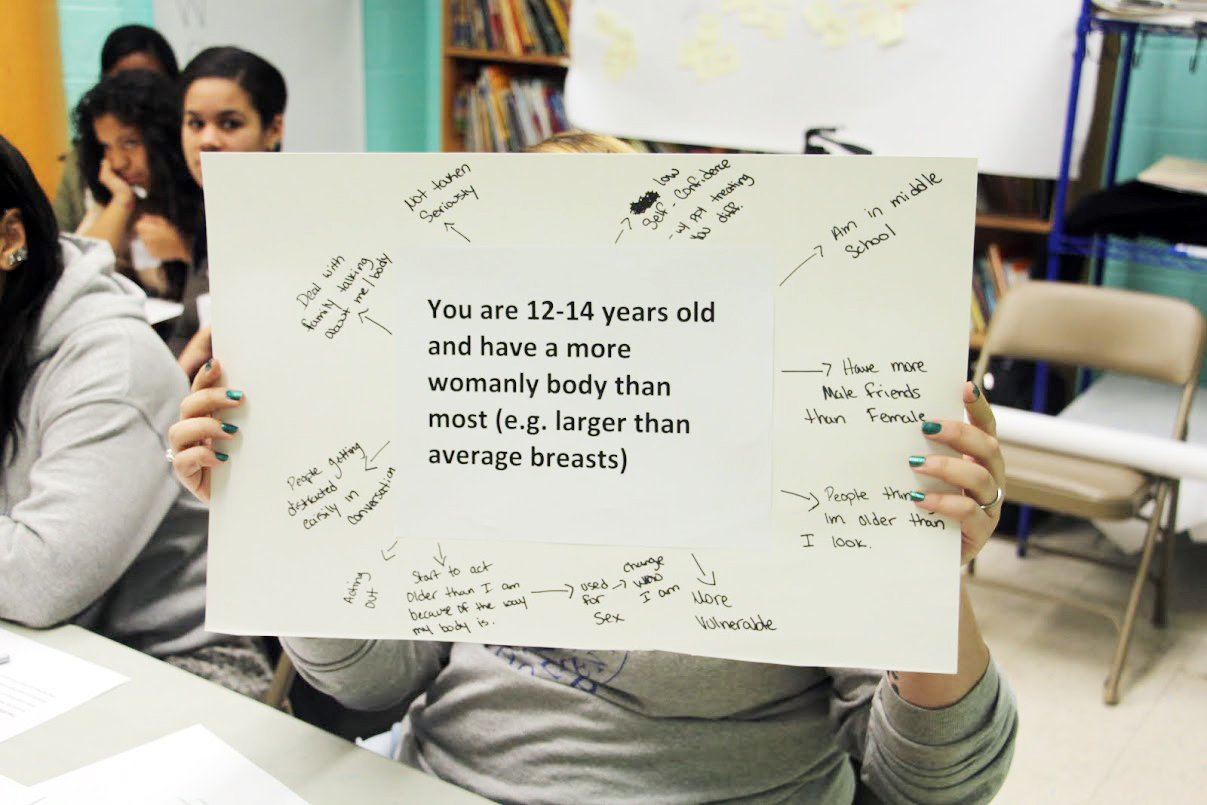 Not taken
Seriously
low
Self-Confidence
- w/ ppl treating
you diff.
Am in middle
School
Deal with
family talking
about me/body
You are 12-14 years old
and have a more
womanly body than
most (e.g. larger than
average breasts)
Have more
Male friends
than Female
People getting
distracted
easily in
conversation
People thin
im older than
I look.
Acting
out
Start to act
older than I am
because of the way
my body is.
used
for
Sex
change
who
I am
More
Vulnerable